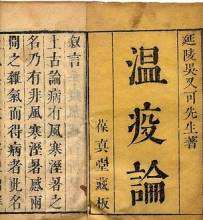 延陵吳又可先生著
温疫論
葆真堂藏板
叙言
上古論病有風寒溼暑之
名乃有非風寒溼暑感兩
間之雜氣而得病者此